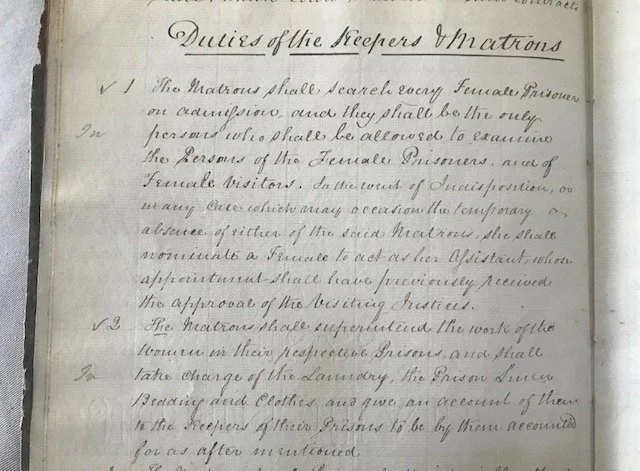 Duties of the Keepers & Matrons
✓ 1 The Matrons shall search every Female Prisoner
on admission, and they shall be the only
In persons who shall be allowed to examine
the Persons of the Female Prisoners, and of
Female Visitors. In the event of Indisposition, or
in any case which may occasion the temporary
absence of either of the said Matrons, she shall
nominate a Female to act as her Assistant, whose
appointment shall have previously received
the approval of the Visiting Justices.
✓ 2 The Matrons shall superintend the work of the
Women in their respective Prisons, and shall
In take charge of the Laundry, the Prison Linen
Bedding and Clothes and give an account of them
to the Keepers of their Prisons to be by them accounted
for as after mentioned